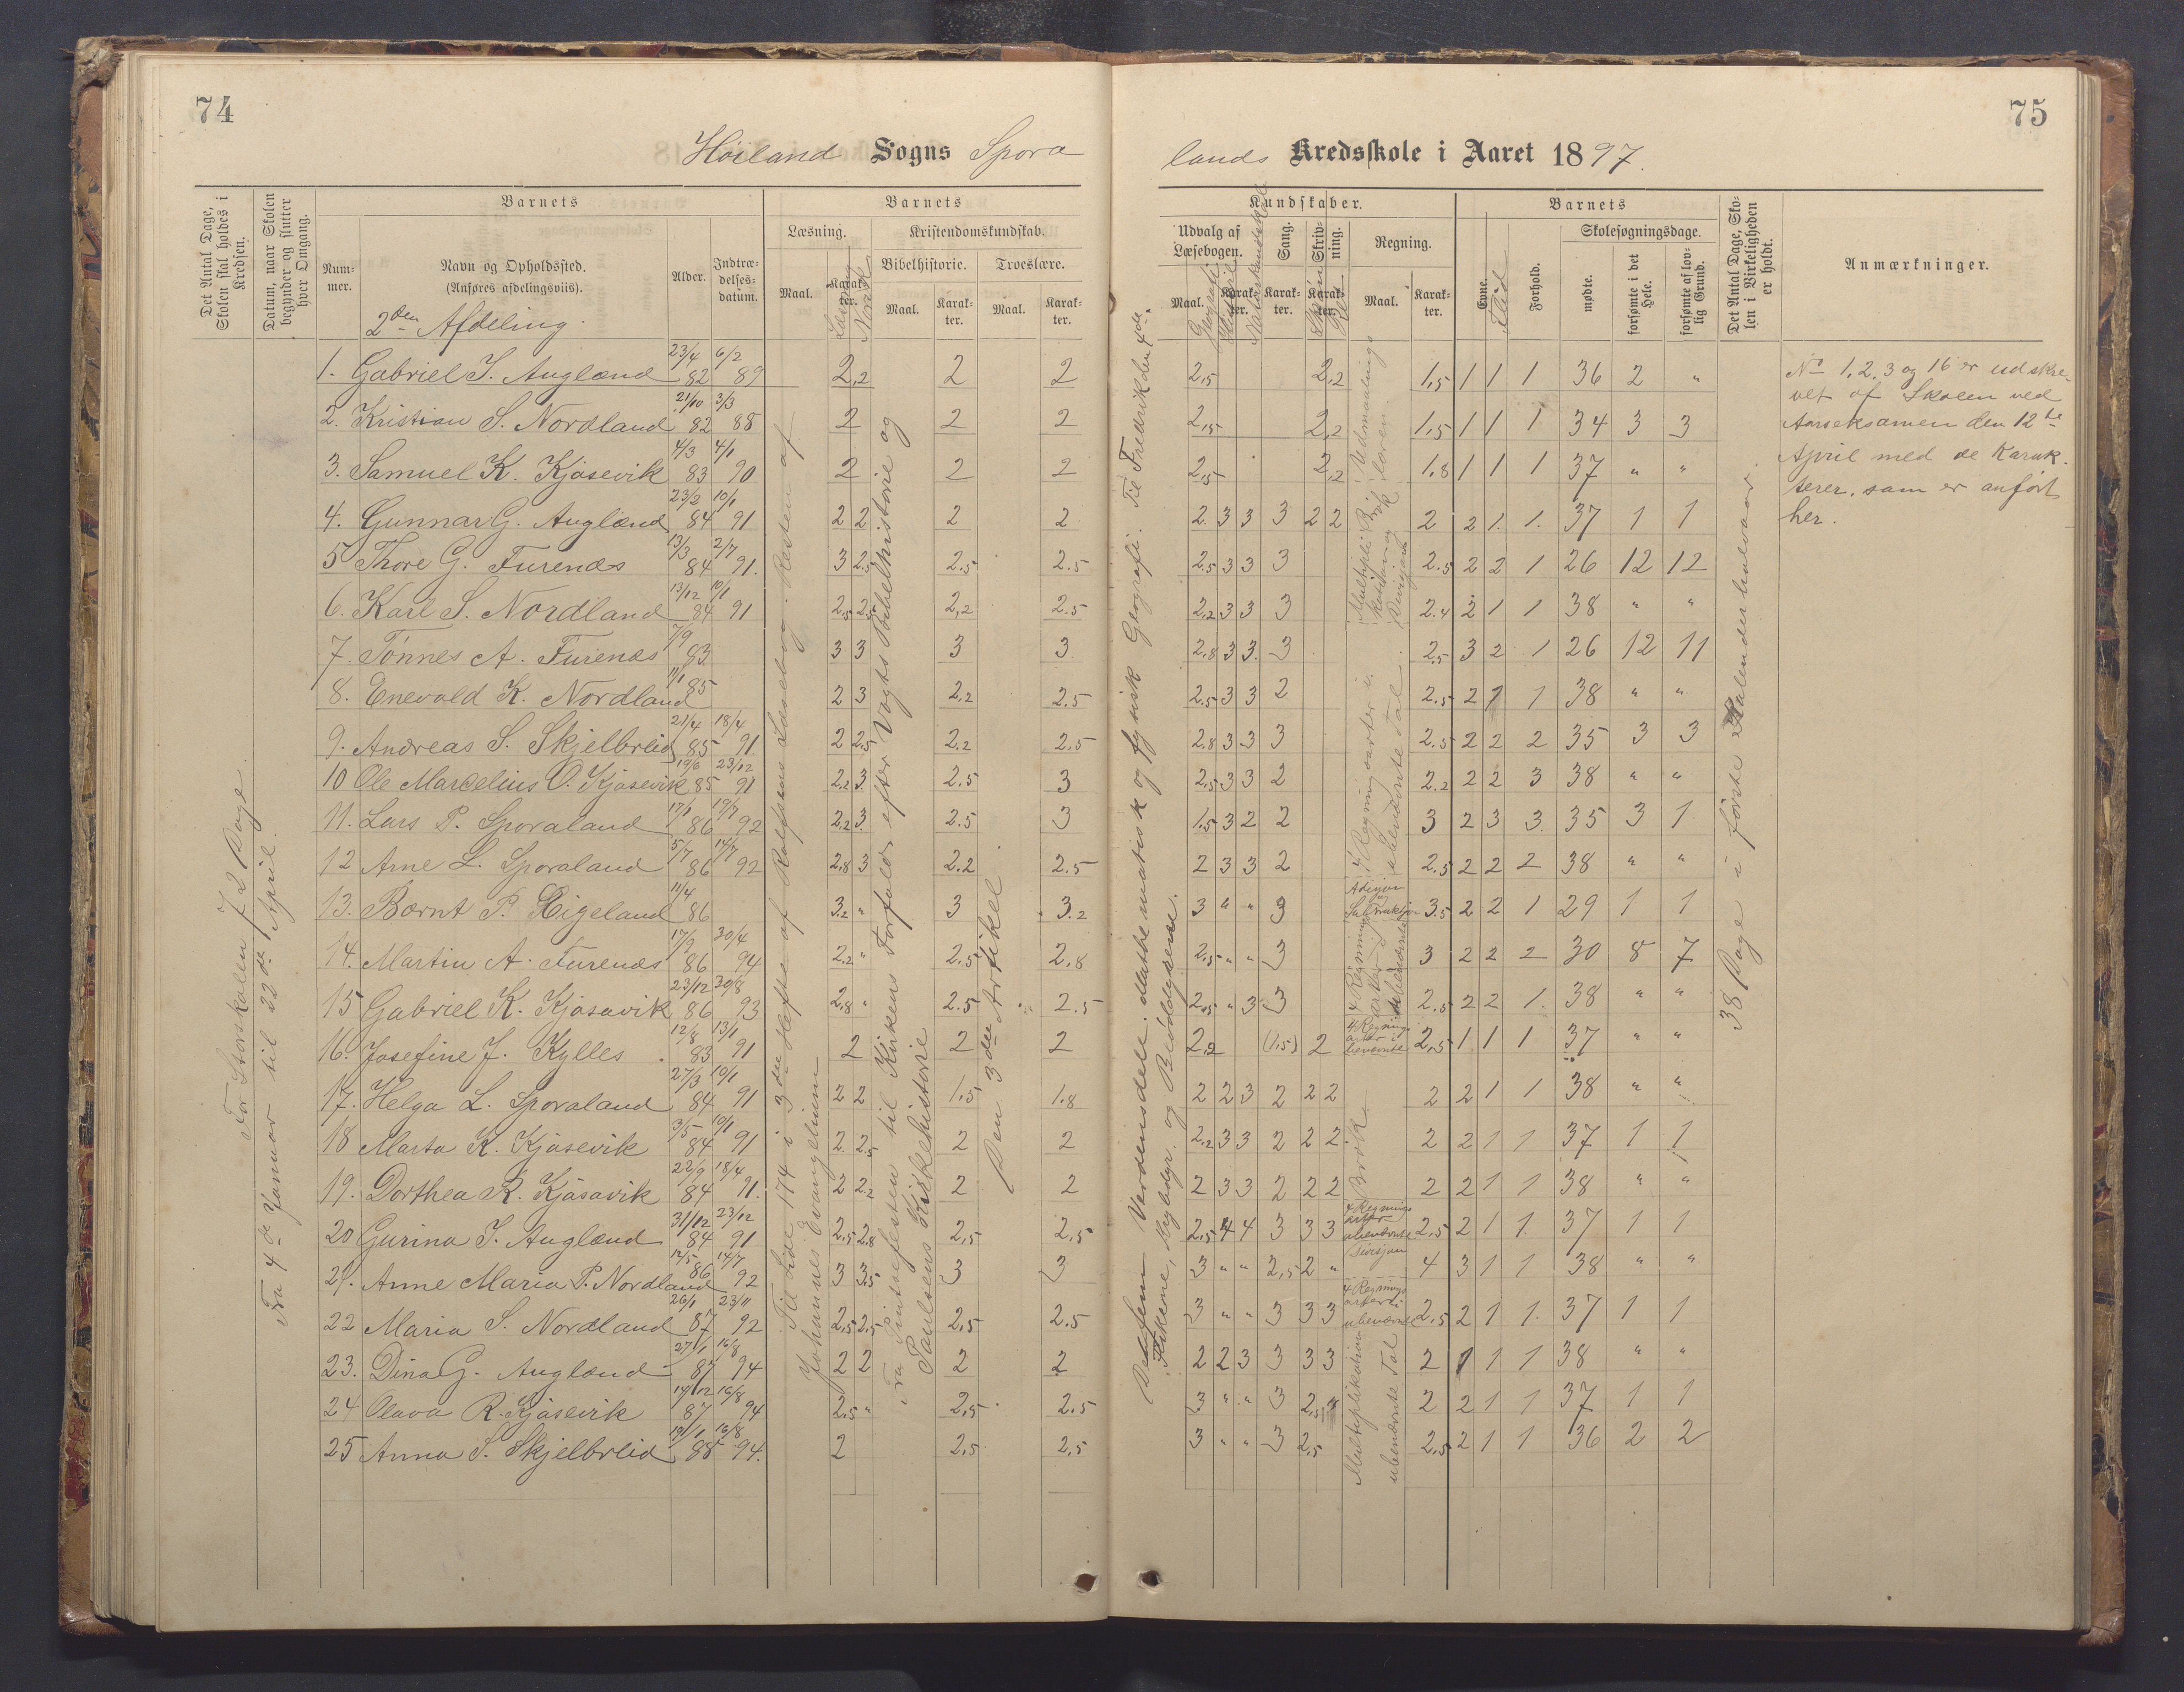 74
75
Høiland Sogns Spora
lands Kredsskole i Aaret 1897.
Det Antal Dage, Skolen skal holdes i Kredsen.
Datum, naar Skolen begynder og slutter hver Omgang.
Barnets
Num-mer.
Navn og Opholdssted.
(Anføres afdelingsviis).
Alder.
Indtræ-delses-datum.
Barnets
Læsning.
Maal. Karak-ter.
Læsning
Norsk
Kristendomskundskab.
Bibelhistorie. Troeslære.
Maal. Karak-ter. Maal. Karak-ter.
Kundskaber.
Udvalg af Læsebogen.
Maal. Karak-ter.
Geografi
Historie
Naturkundskab
Sang.
Karak-ter.
Skriv-ning.
Karak-ter.
Regning.
Maal. Karak-ter.
Barnets
Evne.
Flid
Forhold.
Skolesøgningsdage.
mødte.
forsømte i det Hele.
forsømte af lov-lig Grund.
Det Antal Dage, Sko-len i Virkeligheden er holdt.
Anmærkninger.
2den Afdeling.
1. Gabriel T. Auglænd 23/4 82 6/2 89 2,2 2 2 2,5 2,2 1,5 1 1 1 36 2 "
2. Kristian S. Nordland 21/10 82 3/3 88 2 2 2 2,5 2,2 1,5 1 1 1 34 3 3
3. Samuel K. Kjøsevik 4/3 83 4/1 90 2 2 2 2,5 2,2 1,8 1 1 1 37 " "
4. Gunnar G. Auglænd 23/2 84 10/1 91 2 2 2 2 2. 3 3 3 2 2 2 2 1. 1. 37 1 1
5 Thore G. Furenæs 13/3 84 2/7 91. 3 2.5 2.5 2.5 2.5 3 3 3 2.5 2 2 1 26 12 12
6. Karl S. Nordland 13/12 84 10/1 91 2.5 2.5 2,2 2.5 2.2 3 3 3 2.4 2 1 1 38 " "
7. Tønnes A. Furenæs 7/9 83 3 3 3 3 2.8 3 3. 3 2.5 3 2 1 26 12 11
8. Enevald K. Nordland 11/1 85 2 3 2.2 2.5 2.5 3 3 2 2.5 2 1 1 38 " "
9. Andreas S. Skjelbreid 21/4 85 18/4 91 2 2.5 2.2 2.5 2.8 3 3 3 2.5 2 2 2 35 3 3
10 Ole Marcelius O. Kjøsevik 19/6 85 23/12 91 2.2 3. 2.5 3 2.5 3 3 2 2.2 2 2 3 38 " "
11. Lars P. Sporaland 17/1 86 19/7 92 2.2 3. 2.5 3 1.5 3 2 2 3 2 3 3. 35 3 1
12 Arne L. Sporaland 5/7 86 14/7 92 2.8 3 2.2 2.5 2 3 3 2 2.5 2 2 2 38 " "
13. Bærnt P. Eigeland 11/4 86 3.2 " 3 3.2 3 " " 3 3.5 2 2 1 29 1 1
14. Martin A. Furenæs 17/9 86 30/4 94 2.2 " 2.5 2,8 2,5 " " 3 3 2 2 2 30 8 7
15 Gabriel K. Kjøsavik 23/12 86 30/8 93 2.8 " 2.5 2.5 2,5 " 3 3 2.5 2 2 1. 38 " "
16. Josefine J. Kylles 12/8 83 13/1 91 2 2 2 2,2 (1,5) 2 2,5 1 1 1 37 " "
17. Helga L. Sporaland 27/3 84 10/1 91 2 2 1.5 1.8 2 2 3 2 2 2 2 2 1 1 38 " "
18 Marta K. Kjøsevik 3/5 84 10/1 91 2. 2.5 2 2 2,2 3 3 2 2 2. 2 2 1 1 37 1 1
19. Dorthea R. Kjøsavik 22/9 84 18/4 91. 2 2.2 2 2 2 3 3 2 2 2 2 2 1 1 38 " "
20 Gurina T. Auglænd 31/12 84 23/12 91 2,5 2,8 2,5 2,5 2,5 4 4 3 3 3 2,5 2 1 1. 37 1 1
21. Anne Maria P. Nordland 12/5 86 14/7 92 3 3.5 3 3 3 " " 2,5 2 " 4 3 1 1 38 " "
22 Maria S. Nordland 26/1 87 23/11 92 2,5 2,5 2,5 2.5 3 " " 3 3 3 2,5 2 1 1. 37 1 1
23. Dina G. Auglænd 27/1 87 16/8 94 2 2 2 2 2 2 3 3 3 3 2 1 1 1 38 " "
24 Olava R. Kjøsevik 14/12 87 16/8 94 2,5 " 2,5 2.5 3 " " 3 2,5 2 2 1 1 37 1 1
25 Anna S. Skjelbreid 19/1 88 16/8 94. 2 2,5 2,5 3 " " 3 2,5 2,5 2 1 1 36 2 2
For Storskolen 72 Dage.
Fra 4de Januar til 22de April.
Til Side 174 i 3die Hefte af Rolfsens Læsebog. Resten af
Johannes Evangelium
Fra Pintsefesten til Kirkens Forfald efter Vogts Bibelhistorie og
Paulsens Kirkehistorie
Den 3die Artikel
De fem Verdensdele. Mathematisk og fysisk Geografi. Til Fredrik den 4de.
Fiskene, Krybdyr og Bløddyrene.
Udmaalings
læren.
Brøk
Multipli-
kation og
Division
4 Regningsarter i
ubenævnte Tal.
Adisjon
og
Subtraksjon
4 Regnings
arter i
ubenævnte
4 Regnings
arter i
benævnte
Brøk
4 Regnings
arter
ubenævnte
Divisjon
4 Regnings
arter i
ubenævnte
Multiplikation
ubenævnte Tal
38 Dage i første Kalenderhalvaar.
No 1, 2, 3 og 16 er udskre-
vet af Skolen ved
Aarseksamen den 12te
April med de Karak-
terer, som er anført
her.